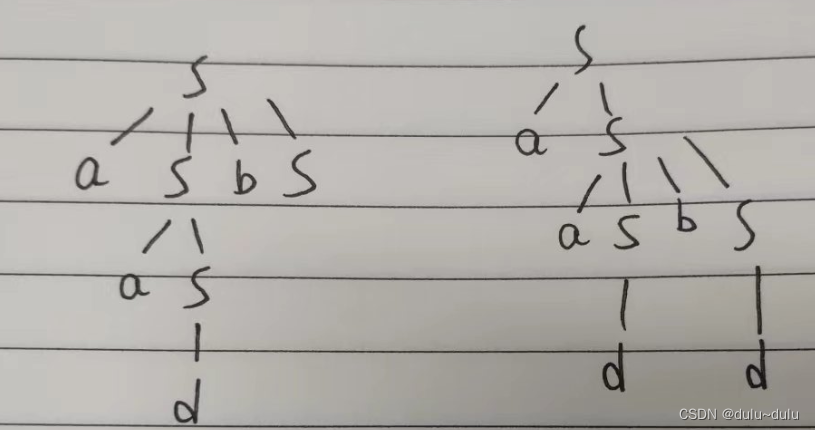 S
a S b S
a S
d
S
a S
a S b S
d d
CSDN @dulu~dulu